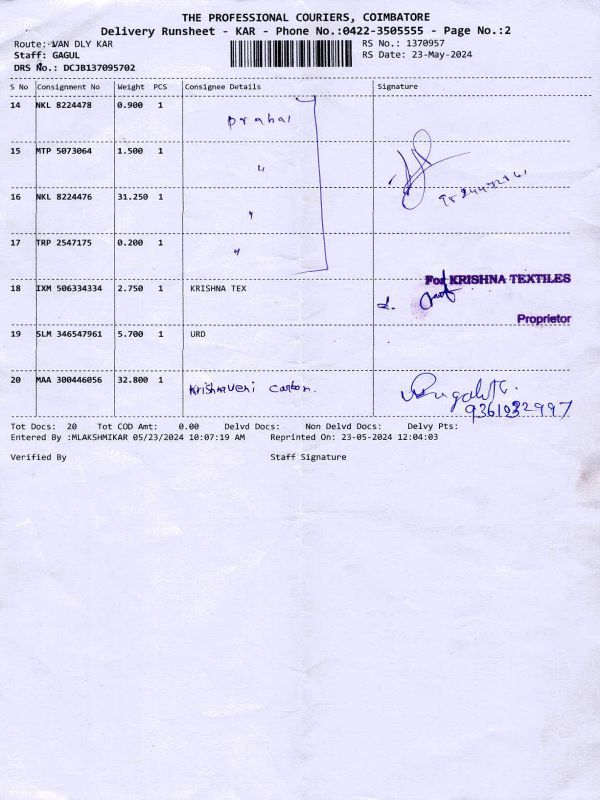 THE PROFESSIONAL COURIERS, COIMBATORE
Delivery Runsheet - KAR - Phone No.:0422-3505555 - Page No.:2
Route: VAN DLY KAR RS No.: 1370957
Staff: GAGUL RS Date: 23-May-2024
DRS No.: DCJB137095702
S No Consignment No Weight PCS Consignee Details Signature
14 NKL 8224478 0.900 1 Prabal
15 MTP 5073064 1.500 1 "
16 NKL 8224476 31.250 1 "
17 TRP 2547175 0.200 1 "
For KRISHNA TEXTILES
18 IXM 506334334 2.750 1 KRISHNA TEX
Proprietor
19 SLM 346547961 5.700 1 URD
20 MAA 300446056 32.800 1 Krishnaveni carbon.
9361032997
Tot Docs: 20 Tot COD Amt: 0.00 Delvd Docs: Non Delvd Docs: Delvy Pts:
Entered By :MLAKSHMIKAR 05/23/2024 10:07:19 AM Reprinted On: 23-05-2024 12:04:03
Verified By Staff Signature